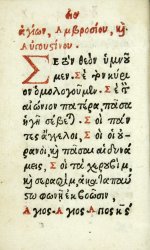 ἁγίων, Ἀμβροσίου, κὶ
Αὐγουστίνου.
Σὲ τὸν θεὸν ὑμνοῦ
μεν· Σὲ τὸν κύρι
ον ὁμολογοῦμεν. Σὲ τ
αἰώνιον πατέρα, πᾶσα
ἡ γῆ σέβει. Σοὶ πάν
τες ἄγγελοι, Σοὶ οἱ οὐ
ρανοὶ, κὶ πᾶσαι αἱ δυνά
μεις, Σοὶ τὰ χερουβὶμ,
κὶ σεραφὶμ, ἀκαταπαύσ
τῳ φωνῇ ἐκβοῶσιν,
Ἅγιος. Ἅγιος. Ἅγιος κς